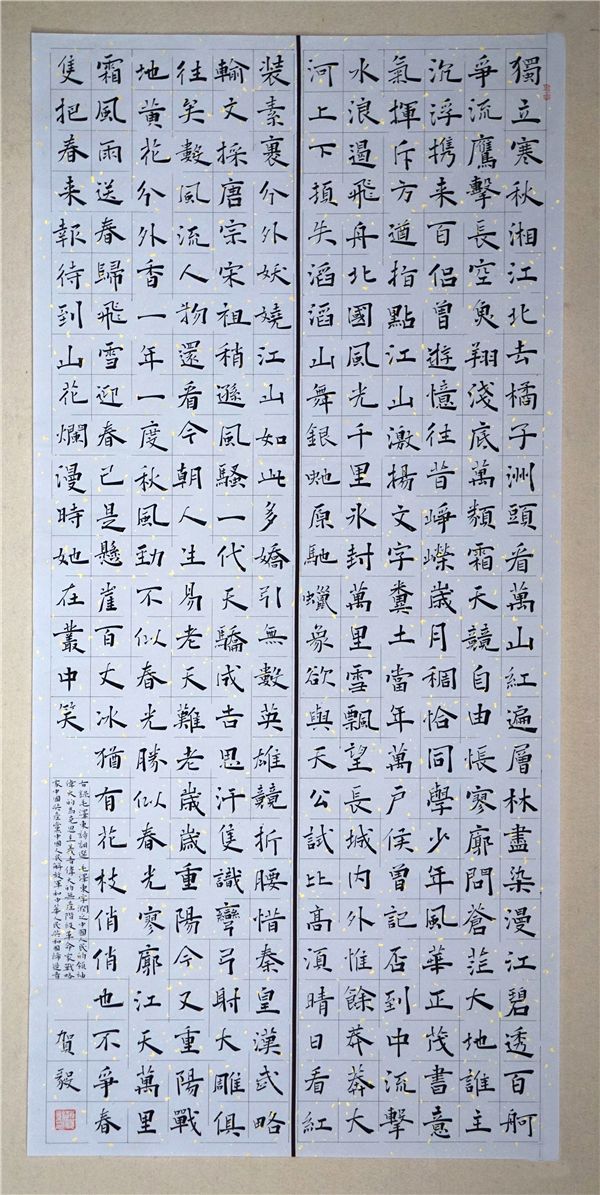 獨立寒秋湘江北去橘子洲頭看萬山紅遍層林盡染漫江碧透百舸
爭流鷹擊長空魚翔淺底萬類霜天競自由悵寥廓問蒼茫大地誰主
沉浮携来百侣曾遊憶往昔崢嶸歲月稠恰同學少年風華正茂書意
氣揮斥方遒指點江山激揚文字糞土當年萬戶侯曾記否到中流擊
水浪遏飛舟北國風光千里氷封萬里雪飄望長城内外惟餘莽莽大
河上下頓失滔滔山舞銀虵原馳蠟象欲與天公試比高湏晴日看紅
装素裹分外妖嬈江山如此多嬌引無數英雄競折腰惜秦皇漢武略
輸文採唐宗宋祖稍遜風騷一代天驕成吉思汗隻識彎弓射大雕俱
往矣數風流人物還看今朝人生易老天難老歲歲重陽今又重陽戰
地黄花分外香一年一度秋風勁不似春光勝似春光寥廓江天萬里
霜風雨送春歸飛雪迎春已是懸崖百丈冰猶有花枝俏俏也不爭春
隻把春来報待到山花爛漫時她在叢中笑
毛澤東詩詞選 毛澤東字潤之中國人民的領袖
偉大的馬克思主義者偉大的無産階級革命家戰略
家中國共産黨中國人民解放軍和中華人民共和國締造者
賀毅